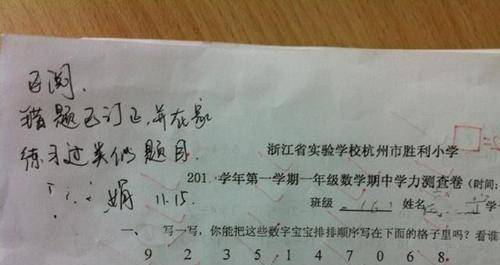 已阅.
错题已订正,并在家
练习过类似题目.
娟 11.15.
浙江省实验学校杭州市胜利小学
201 学年第一学期一年级数学期中学力测查卷(时间:
班级 姓名 学号
一、 写一写,你能把这些数字宝宝排排顺序写在下面的格子里吗?看谁
9 2 3 0 5 1 4 7 6 8